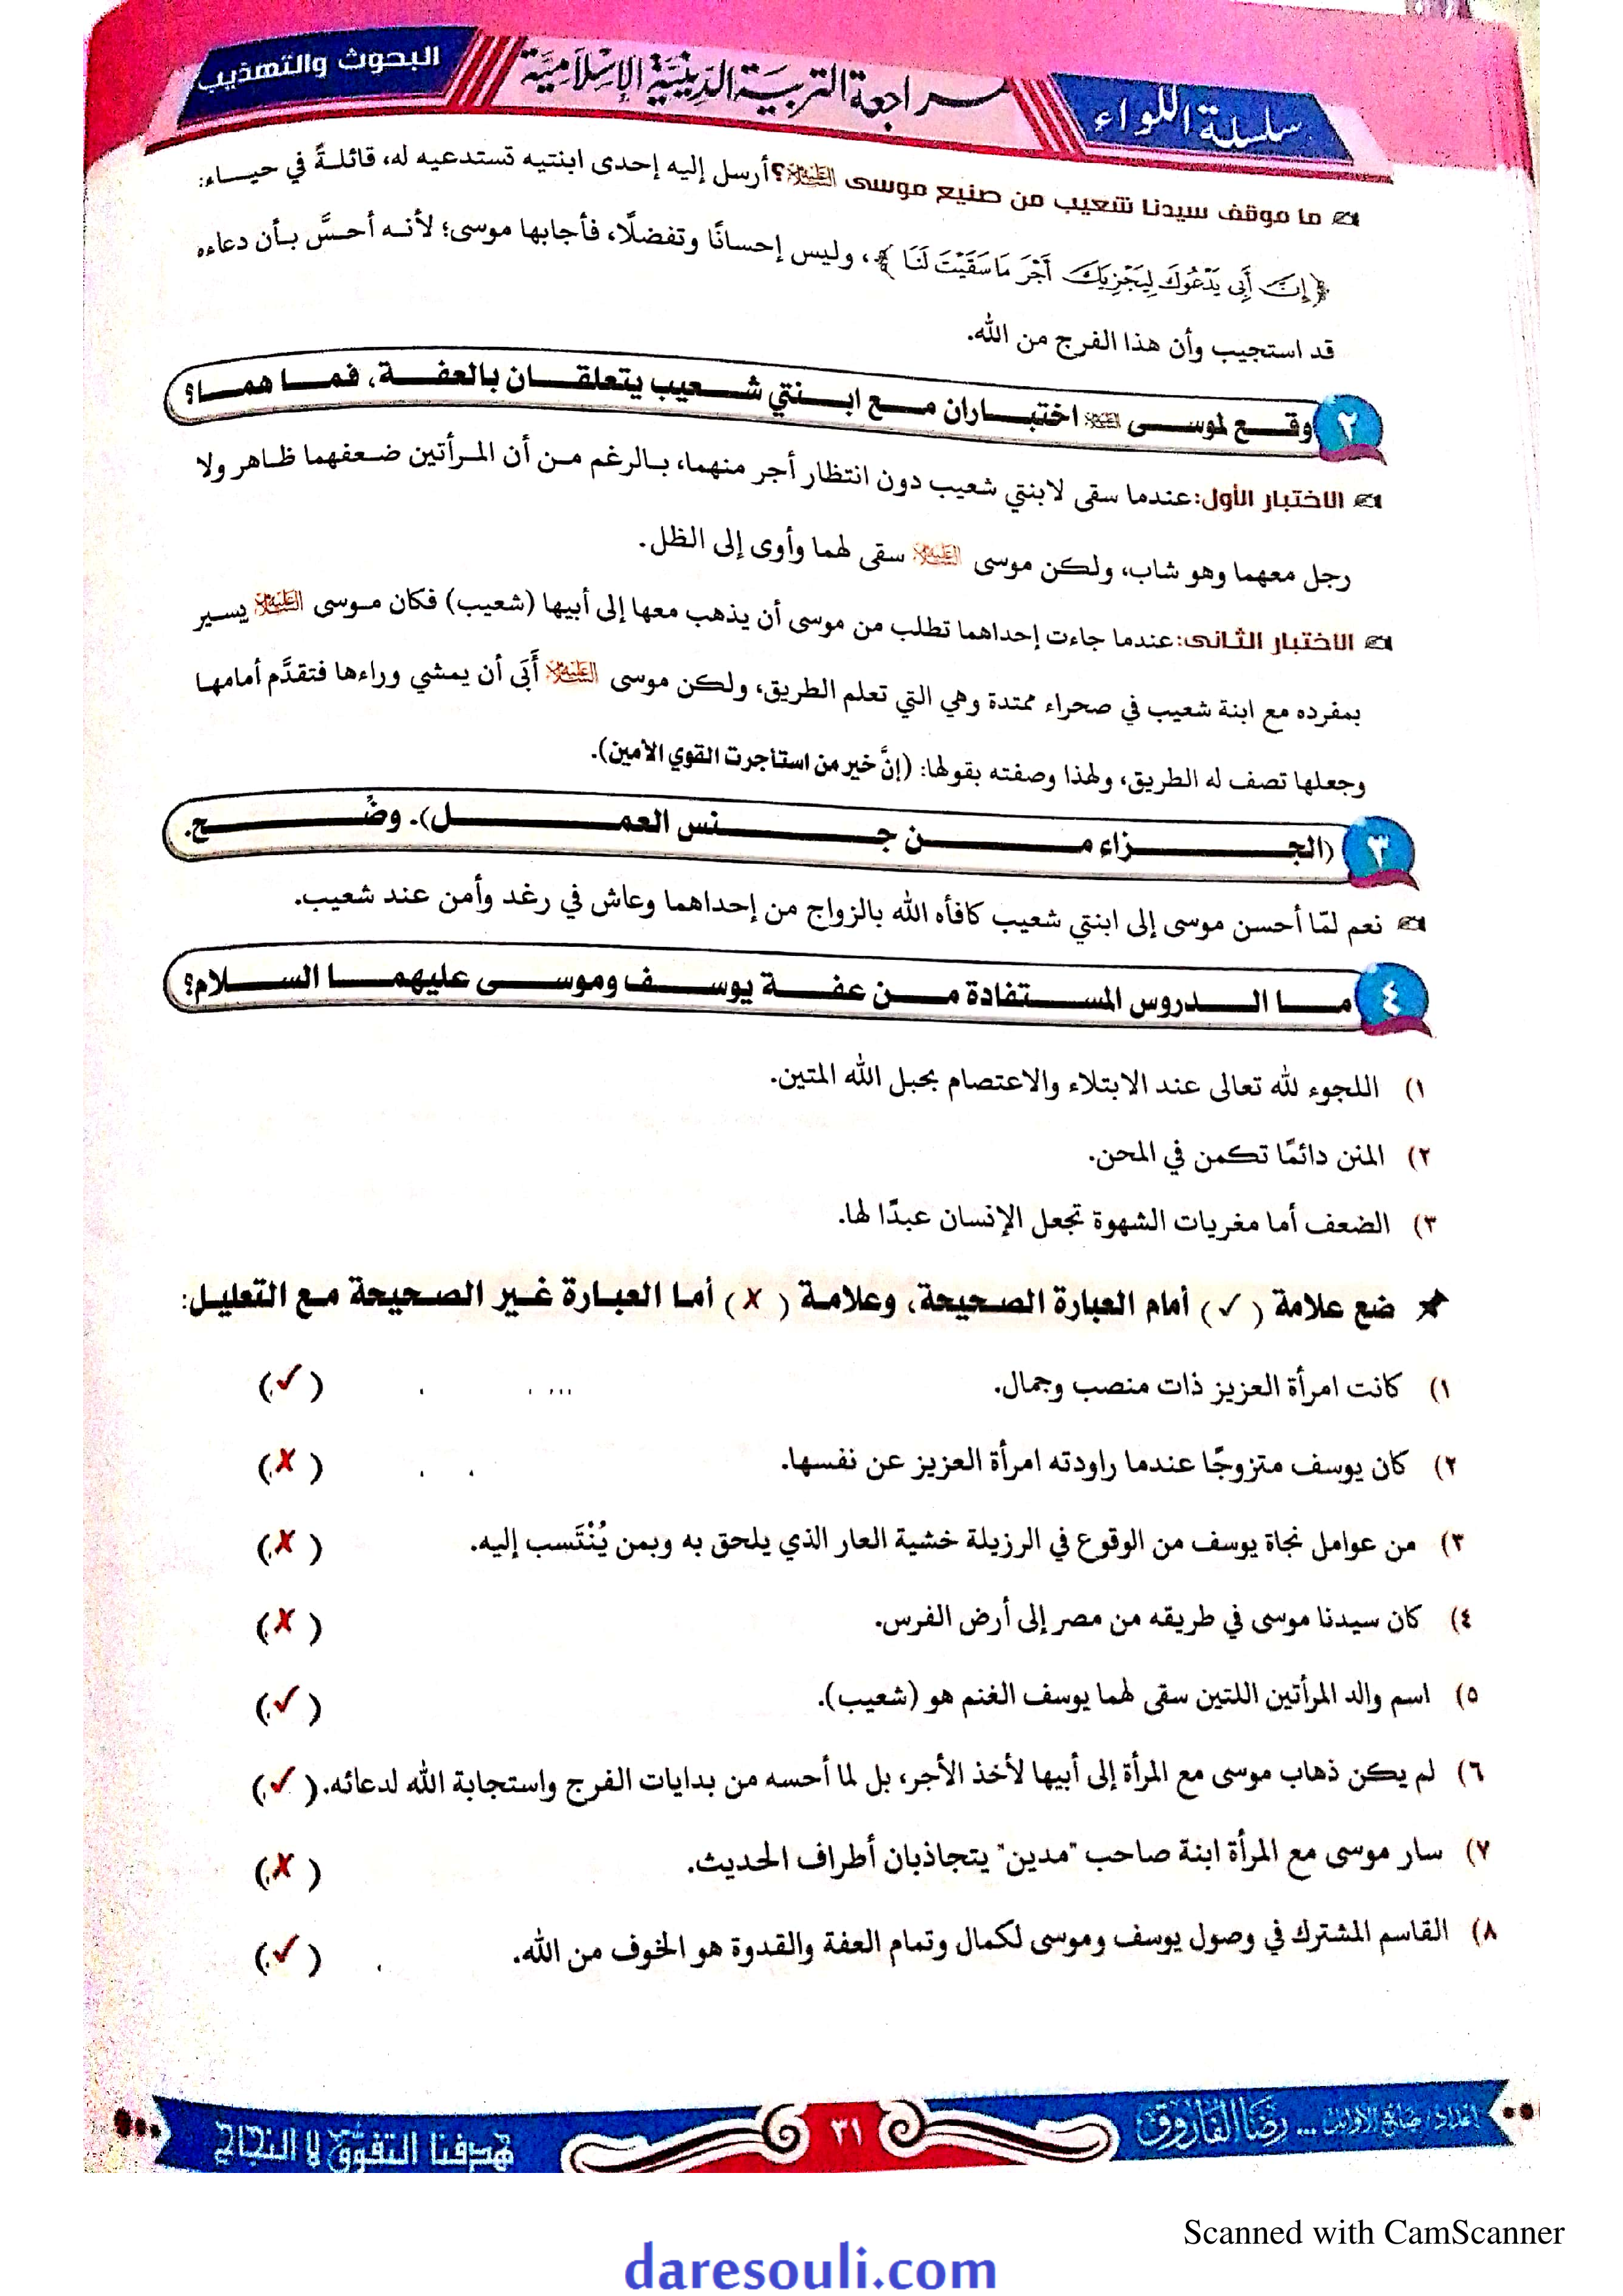 سلسلة اللواء
مراجعة التربية الدينية الإسلامية
البحوث والتهذيب
ما موقف سيدنا شعيب من صنيع موسى عليه السلام؟ أرسل إليه إحدى ابنتيه تستدعيه له، قائلةً في حياء:
﴿إِنَّ أَبِي يَدْعُوكَ لِيَجْزِيَكَ أَجْرَ مَا سَقَيْتَ لَنَا﴾، وليس إحسانًا وتفضلًا، فأجابها موسى؛ لأنه أحسَّ بأن دعاءه
قد استجيب وأن هذا الفرج من الله.
٢ وقع لموسى عليه السلام اختباران مع ابنتي شعيب يتعلقان بالعفة، فما هما؟
الاختبار الأول: عندما سقى لابنتي شعيب دون انتظار أجر منهما، بالرغم من أن المرأتين ضعفهما ظاهر ولا
رجل معهما وهو شاب، ولكن موسى عليه السلام سقى لهما وأوى إلى الظل.
الاختبار الثانى: عندما جاءت إحداهما تطلب من موسى أن يذهب معها إلى أبيها (شعيب) فكان موسى عليه السلام يسير
بمفرده مع ابنة شعيب في صحراء ممتدة وهي التي تعلم الطريق، ولكن موسى عليه السلام أَبَى أن يمشي وراءها فتقدَّم أمامها
وجعلها تصف له الطريق، ولهذا وصفته بقولها: (إنَّ خير من استأجرت القوي الأمين).
٣ (الجزاء من جنس العمل). وضِّح.
نعم لمّا أحسن موسى إلى ابنتي شعيب كافأه الله بالزواج من إحداهما وعاش في رغد وأمن عند شعيب.
٤ ما الدروس المستفادة من عفة يوسف وموسى عليهما السلام؟
١) اللجوء لله تعالى عند الابتلاء والاعتصام بحبل الله المتين.
٢) المنن دائمًا تكمن في المحن.
٣) الضعف أما مغريات الشهوة تجعل الإنسان عبدًا لها.
ضع علامة (✓) أمام العبارة الصحيحة، وعلامة (✗) أما العبارة غير الصحيحة مع التعليل:
١) كانت امرأة العزيز ذات منصب وجمال. (✓)
٢) كان يوسف متزوجًا عندما راودته امرأة العزيز عن نفسها. (✗)
٣) من عوامل نجاة يوسف من الوقوع في الرزيلة خشية العار الذي يلحق به وبمن يُنْتَسب إليه. (✗)
٤) كان سيدنا موسى في طريقه من مصر إلى أرض الفرس. (✗)
٥) اسم والد المرأتين اللتين سقى لهما يوسف الغنم هو (شعيب). (✓)
٦) لم يكن ذهاب موسى مع المرأة إلى أبيها لأخذ الأجر، بل لما أحسه من بدايات الفرج واستجابة الله لدعائه. (✓)
٧) سار موسى مع المرأة ابنة صاحب "مدين" يتجاذبان أطراف الحديث. (✗)
٨) القاسم المشترك في وصول يوسف وموسى لكمال وتمام العفة والقدوة هو الخوف من الله. (✓)
... رضا الفاروق
٣١
هدفنا التفوّق لا النجاح
Scanned with CamScanner
daresouli.com